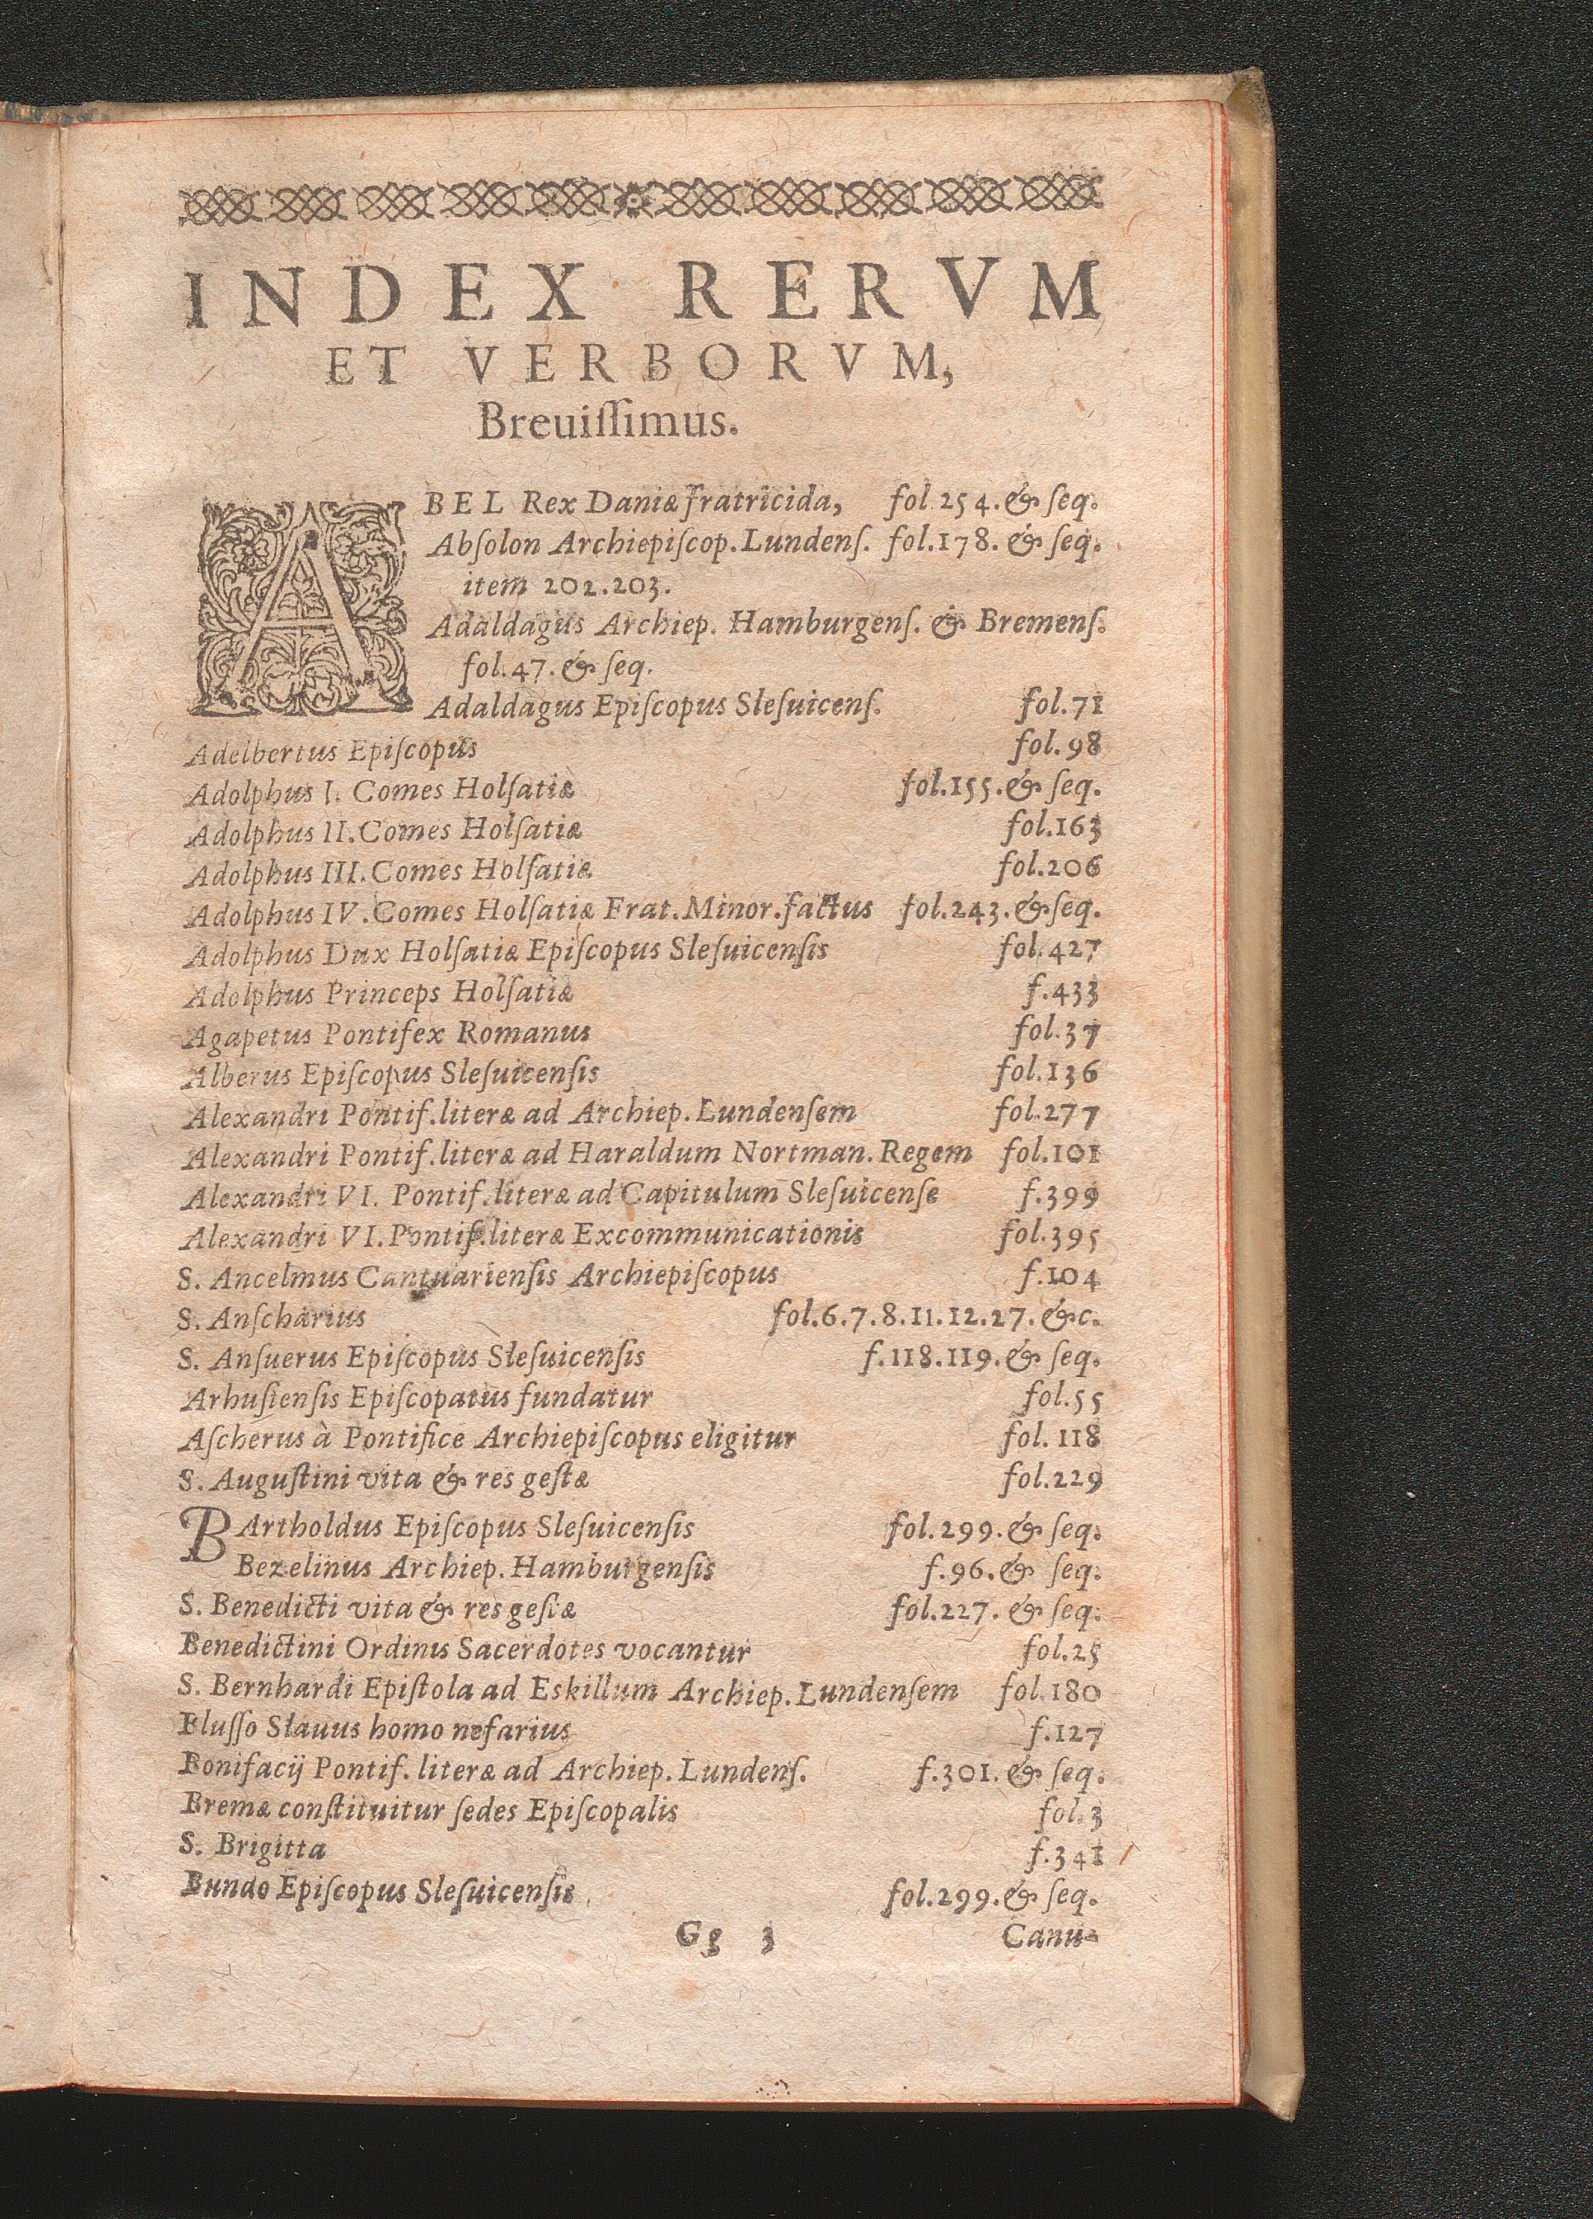 INDEX RERVM
ET VERBORVM,
Breuiſſimus.
ABEL Rex Daniæ fratricida, fol 254. & ſeq.
Abſolon Archiepiſcop. Lundenſ. fol. 178. & ſeq.
item 202. 203.
Adaldagus Archiep. Hamburgenſ. & Bremenſ.
fol. 47. & ſeq.
Adaldagus Epiſcopus Sleſuicenſ. fol. 71
Adelbertus Epiſcopus fol. 98
Adolphus I. Comes Holſatiæ fol. 155. & ſeq.
Adolphus II. Comes Holſatiæ fol. 163
Adolphus III. Comes Holſatiæ fol. 206
Adolphus IV. Comes Holſatiæ Frat. Minor. factus fol. 243. & ſeq.
Adolphus Dux Holſatiæ Epiſcopus Sleſuicenſis fol. 427
Adolphus Princeps Holſatiæ f. 433
Agapetus Pontifex Romanus fol. 37
Alberus Epiſcopus Sleſuicenſis fol. 136
Alexandri Pontif. literæ ad Archiep. Lundenſem fol. 277
Alexandri Pontif. literæ ad Haraldum Nortman. Regem fol. 101
Alexandri VI. Pontif. literæ ad Capitulum Sleſuicenſe f. 399
Alexandri VI. Pontif. literæ Excommunicationis fol. 395
S. Ancelmus Cantuarienſis Archiepiſcopus f. 104
S. Anſcharius fol. 6. 7. 8. 11. 12. 27. &c.
S. Anſuerus Epiſcopus Sleſuicenſis f. 118. 119. & ſeq.
Arhuſienſis Epiſcopatus fundatur fol. 55
Aſcherus à Pontifice Archiepiſcopus eligitur fol. 118
S. Auguſtini vita & res geſtæ fol. 229
BArtholdus Epiſcopus Sleſuicenſis fol. 299. & ſeq.
Bezelinus Archiep. Hamburgenſis f. 96. & ſeq.
S. Benedicti vita & res geſtæ fol. 227. & ſeq.
Benedictini Ordinis Sacerdotes vocantur fol. 25
S. Bernhardi Epiſtola ad Eskillum Archiep. Lundenſem fol. 180
Bluſſo Slauus homo nefarius f. 127
Bonifacij Pontif. literæ ad Archiep. Lundenſ. f. 301. & ſeq.
Bremæ conſtituitur ſedes Epiſcopalis fol. 3
S. Brigitta f. 341
Bundo Epiſcopus Sleſuicenſis fol. 299. & ſeq.
Gg 3 Canu-